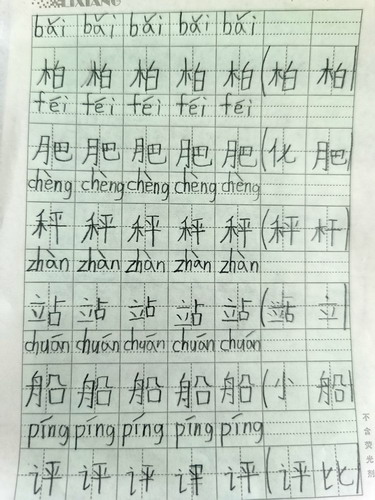 LIXIANG
bǎi bǎi bǎi bǎi bǎi
柏 柏 柏 柏 柏 (柏 柏)
féi féi féi féi féi
肥 肥 肥 肥 肥 (化 肥)
chèng chèng chèng chèng chèng
秤 秤 秤 秤 秤 (秤 杆)
zhàn zhàn zhàn zhàn zhàn
站 站 站 站 站 (站 立)
chuán chuán chuán chuán chuán
船 船 船 船 船 (小 船)
píng píng píng píng píng
评 评 评 评 评 (评 比)
不含荧光剂